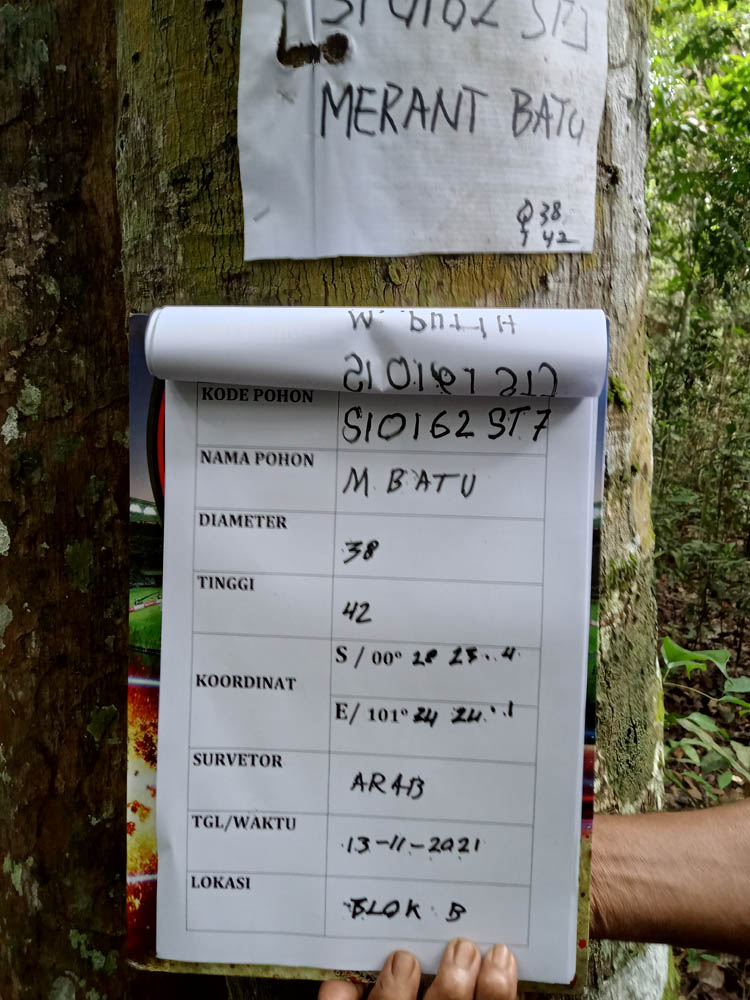 S10162 ST7
MERANT BATU
Φ 38
T 42
KODE POHON S10162 ST7
NAMA POHON M BATU
DIAMETER 38
TINGGI 42
KOORDINAT
S / 00° 28 23.4
E/ 101° 34 24.1
SURVETOR ARAB
TGL/WAKTU 13-11-2021
LOKASI BLOK B